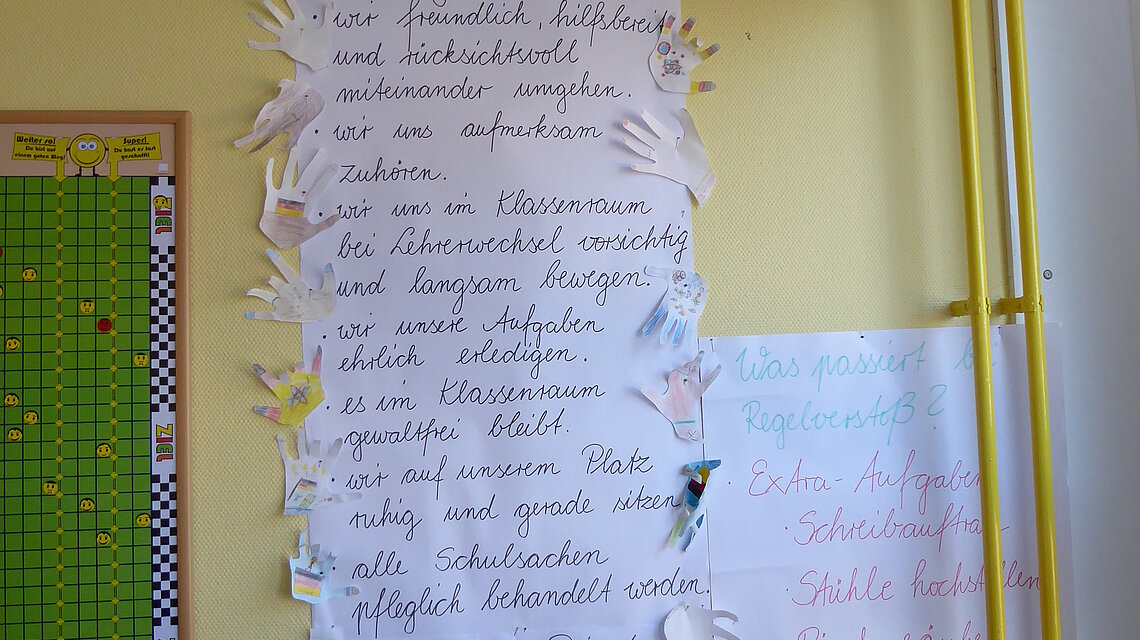 wir freundlich, hilfsbereit
und rücksichtsvoll
miteinander umgehen.
· wir uns aufmerksam
zuhören.
· wir uns im Klassenraum
bei Lehrerwechsel vorsichtig
und langsam bewegen.
· wir unsere Aufgaben
ehrlich erledigen.
· es im Klassenraum
gewaltfrei bleibt.
· wir auf unserem Platz
ruhig und gerade sitzen
alle Schulsachen
pfleglich behandelt werden.
Weiter so!
Du bist auf
einem guten Weg!
Super!
Du hast es fast
geschafft!
ZIEL
ZIEL
Was passiert
Regelverstoß?
· Extra-Aufgaben
· Schreibauftrag
· Stühle hochstellen